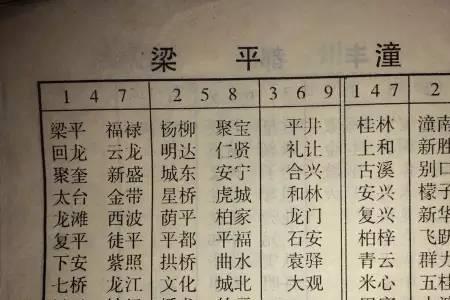 梁 平 潼
1 4 7 2 5 8 3 6 9 1 4 7 2
梁平 福禄 杨柳 聚宝 平井 桂林 潼南
回龙 云龙 明达 仁贤 礼让 上和 新胜
聚奎 新盛 城东 安宁 合兴 古溪 别口
太台 金带 星桥 虎城 和林 安兴 檬子
龙滩 西波 荫平 柏家 龙门 复兴 新华
复平 徒平 平都 平福 石安 柏梓 飞跃
下安 紫照 拱桥 曲水 袁驿 青云 群力
七桥 龙江 文化 城北 大观 米心 五桂